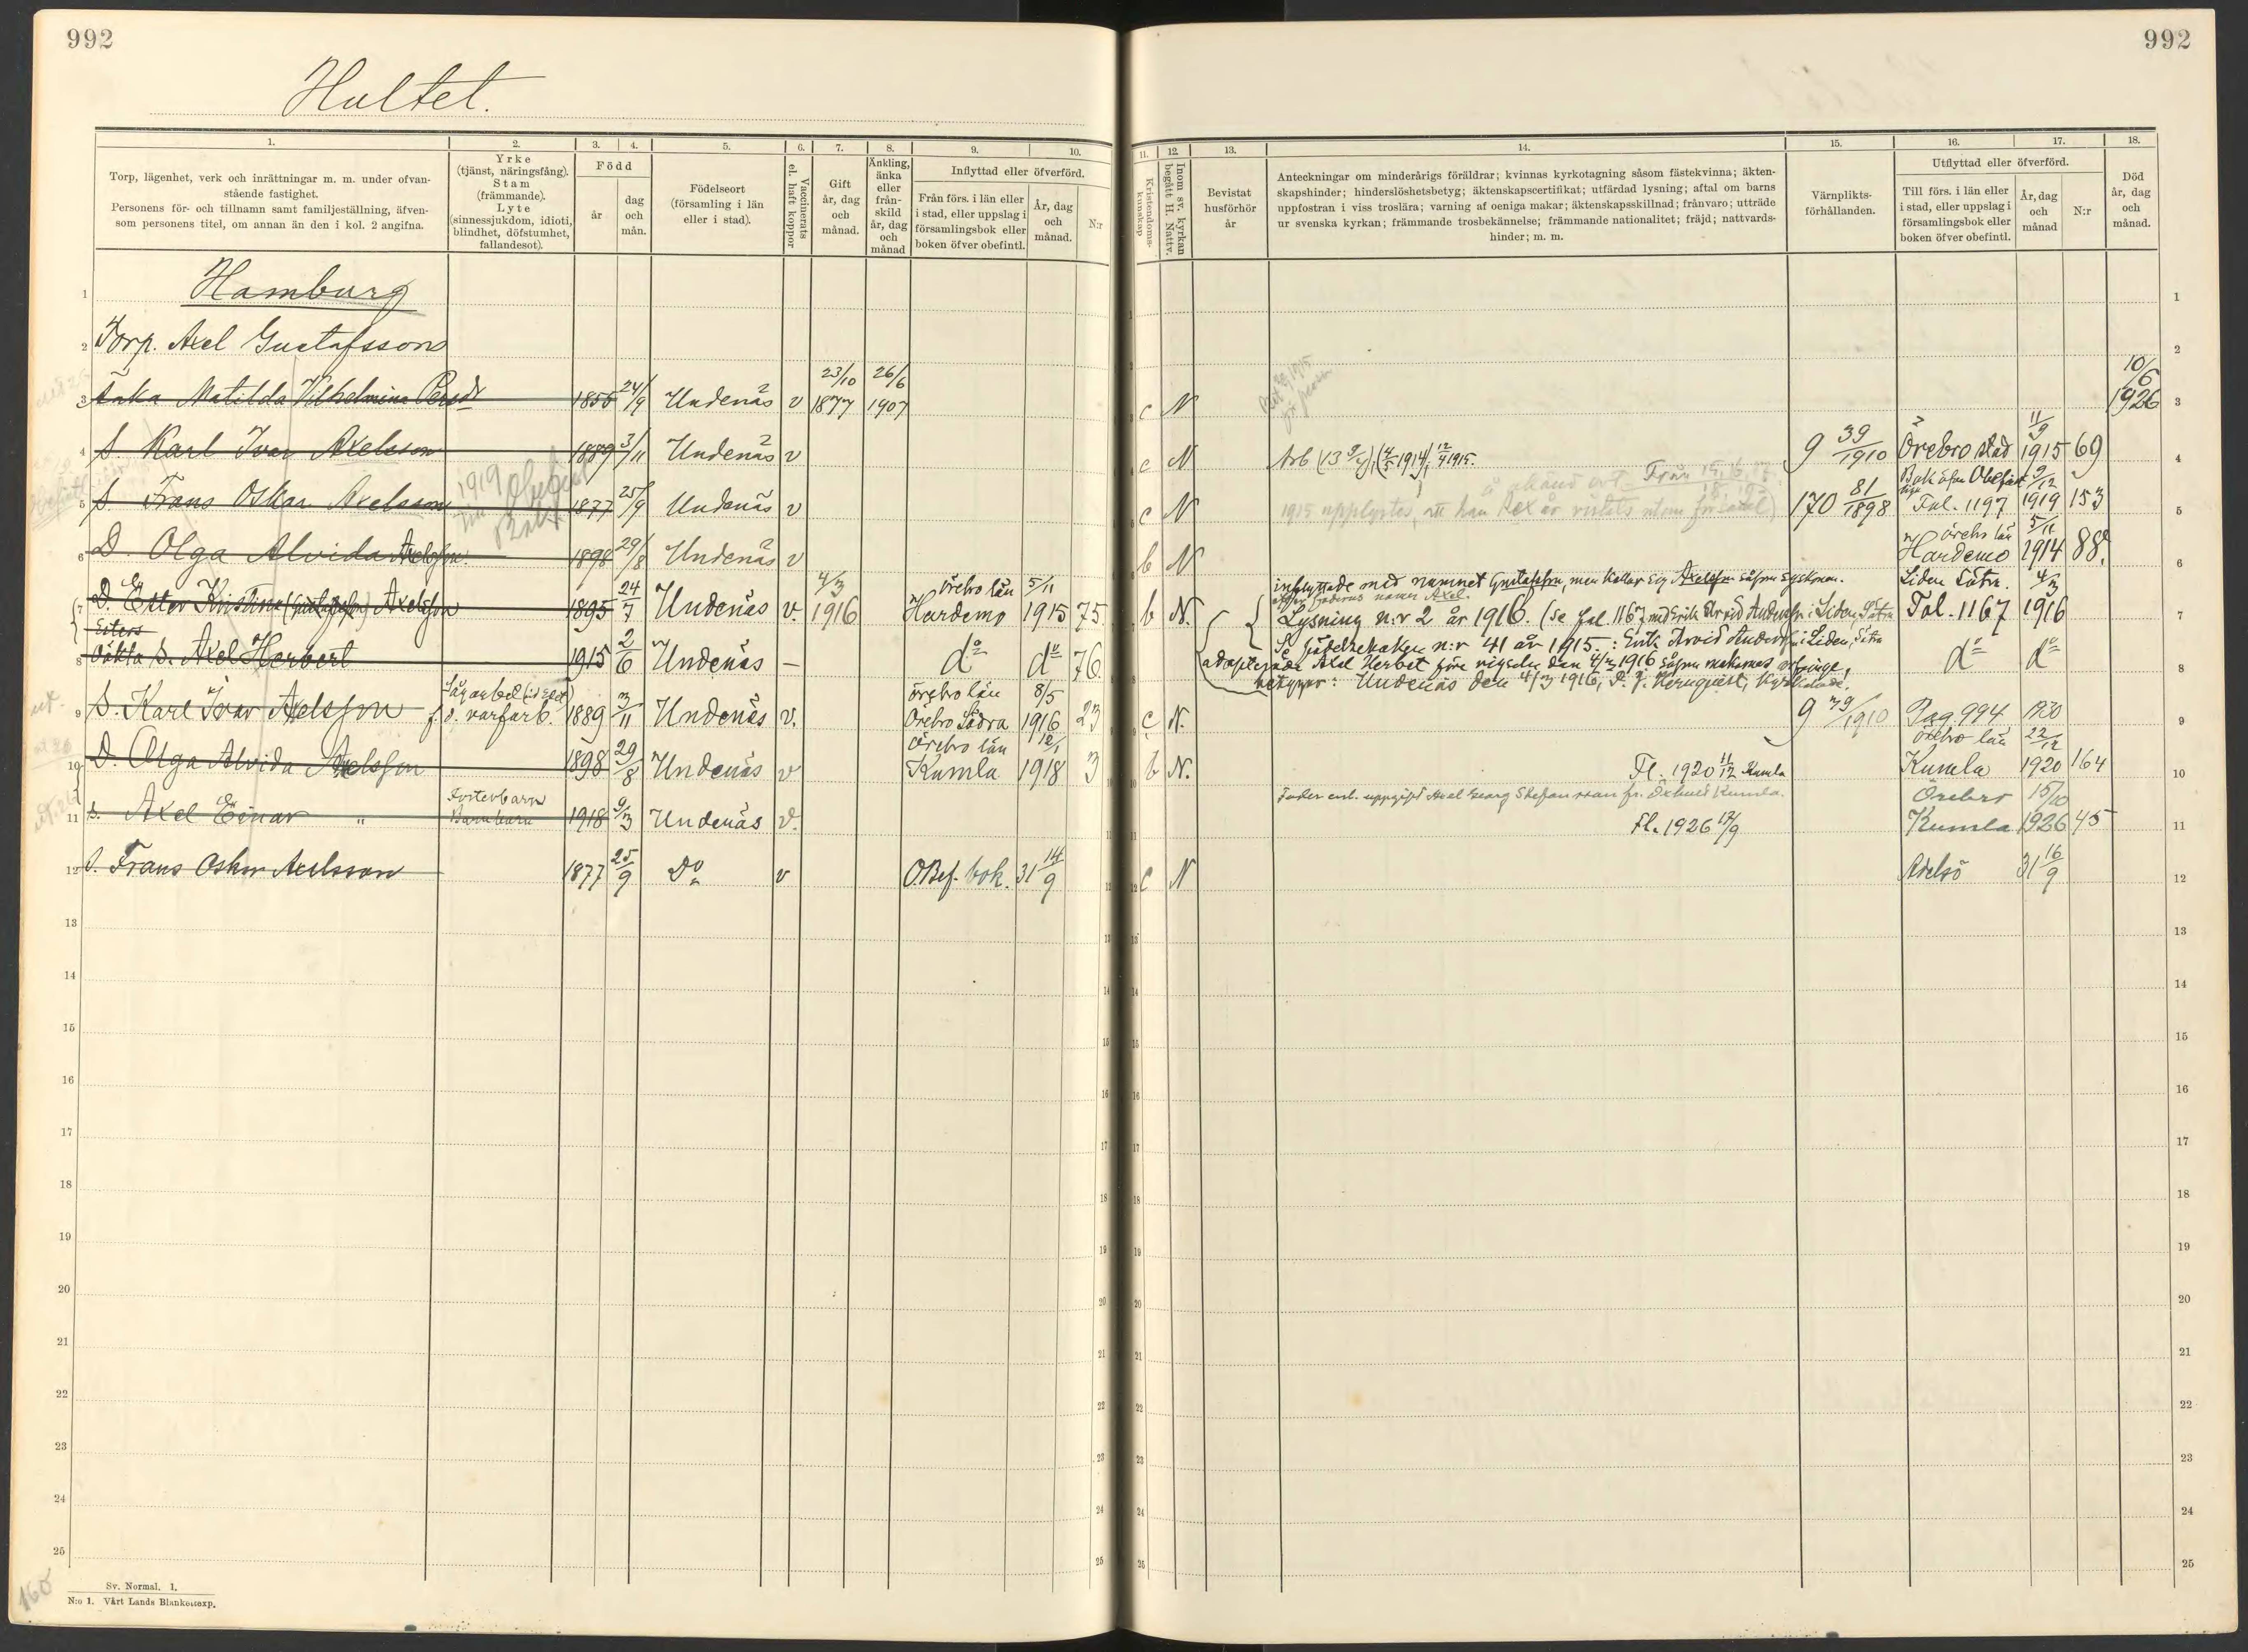 992
992
Hultet.
1.
Torp, lägenhet, verk och inrättningar m. m. under ofvan-
stående fastighet.
Personens för- och tillnamn samt familjeställning, äfven-
som personens titel, om annan än den i kol. 2 angifna.
2.
Yrke
(tjänst, näringsfång).
Stam
(främmande).
Lyte
(sinnessjukdom, idioti,
blindhet, döfstumhet,
fallandesot).
3. 4.
Född
år
dag
och
mån.
5.
Födelseort
(församling i län
eller i stad).
6.
Vaccinerats
el. haft koppor
7.
Gift
år, dag
och
månad.
8.
Änkling,
änka
eller
från-
skild
år, dag
och
månad
9. 10.
Inflyttad eller öfverförd.
Från förs. i län eller
i stad, eller uppslag i
församlingsbok eller
boken öfver obefintl.
År, dag
och
månad.
N:r
11.
Kristendoms-
kunskap
12
Inom sv. kyrkan
begått H. Nattv.
13.
Bevistat
husförhör
år
14.
Anteckningar om minderårigs föräldrar; kvinnas kyrkotagning såsom fästekvinna; äkten-
skapshinder; hinderslöshetsbetyg; äktenskapscertifikat; utfärdad lysning; aftal om barns
uppfostran i viss troslära; varning af oeniga makar; äktenskapsskillnad; frånvaro; utträde
ur svenska kyrkan; främmande trosbekännelse; främmande nationalitet; fräjd; nattvards-
hinder; m. m.
15.
Värnplikts-
förhållanden.
16. 17.
Utflyttad eller öfverförd.
Till förs. i län eller
i stad, eller uppslag i
församlingsbok eller
boken öfver obefintl.
År, dag
och
månad
N:r
18.
Död
år, dag
och
månad.
1 Hamburg 1
2 Torp. Axel Gustafsson 2
3 Änka Matilda Vilhelmina Persdr 1855 24/9 Undenäs v 23/10 1877 26/6 1907 c N 10/6 1926 3
4 S. Karl Ivar Axelsson 1889 3/11 Undenäs v c N 9 39/1910 Örebro stad 11/9 1915 69 4
1919
5 S. Frans Oskar Axelsson 1877 25/9 Undenäs v c N 1915 upplystes, att han 170 81/1898 Fol. 1197 9/12 1919 153 5
6 D. Olga Alvida Axelsson 1898 29/8 Undenäs v b N örebro län Hardemo 5/11 1914 88. 6
inflyttade med namnet Gustafsson, men kallar sig Axelsson såsom syskonen.
7 D. Ester Kristina (Gustafsson) Axelsson 1895 24/7 Undenäs v. 4/3 1916 örebro län Hardemo 5/11 1915 75 b N. Lysning n:r 2 år 1916. (Se fol. 1167 med Erik Arvid Andersson i Liden, Sätra Liden Sätra. Fol. 1167 4/3 1916 7
Esters
Se födelseboken n:r 41 år 1915: Erik Arvid Andersson i Liden, Sätra
8 oäkta s. Axel Herbert 1915 2/6 Undenäs – do do 76 adopterade Axel Herbert före vigseln den 4/3 1916 såsom makarnas do do 8
betygar: Undenäs den 4/3 1916,
9 S. Karl Ivar Axelsson f. d. varfarb. 1889 3/11 Undenäs v. örebro län Örebro Södra 8/5 1916 23 c N. 9 39/1910 Pag. 994 1930 9
10 D. Olga Alvida Axelsson 1898 29/8 Undenäs v örebro län Kumla 12/1 1918 3 b N. Fl. 1920 11/12 Kumla örebro län Kumla 22/12 1920 164 10
Fader enl. uppgift Axel Georg Stefansson fr.
11 s. Axel Einar " Fosterbarn Barnbarn 1918 9/3 Undenäs v. Fl. 1926 17/9 Örebro Kumla 15/10 1926 45 11
12 S. Frans Oskar Axelsson 1877 25/9 Do v OBef. bok. 31 14/9 C N Adelsö 31 16/9 12
13 13
14 14
15 15
16 16
17 17
18 18
19 19
20 20
21 21
22 22
23 23
24 24
25 25
160
Sv. Normal. 1.
N:o 1. Vårt Lands Blankettexp.